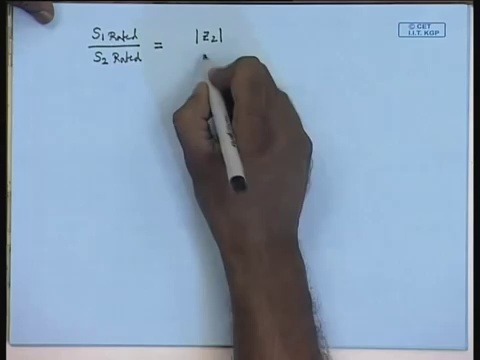 S1 Rated / S2 Rated = |Z2|
© CET
I.I.T. KGP